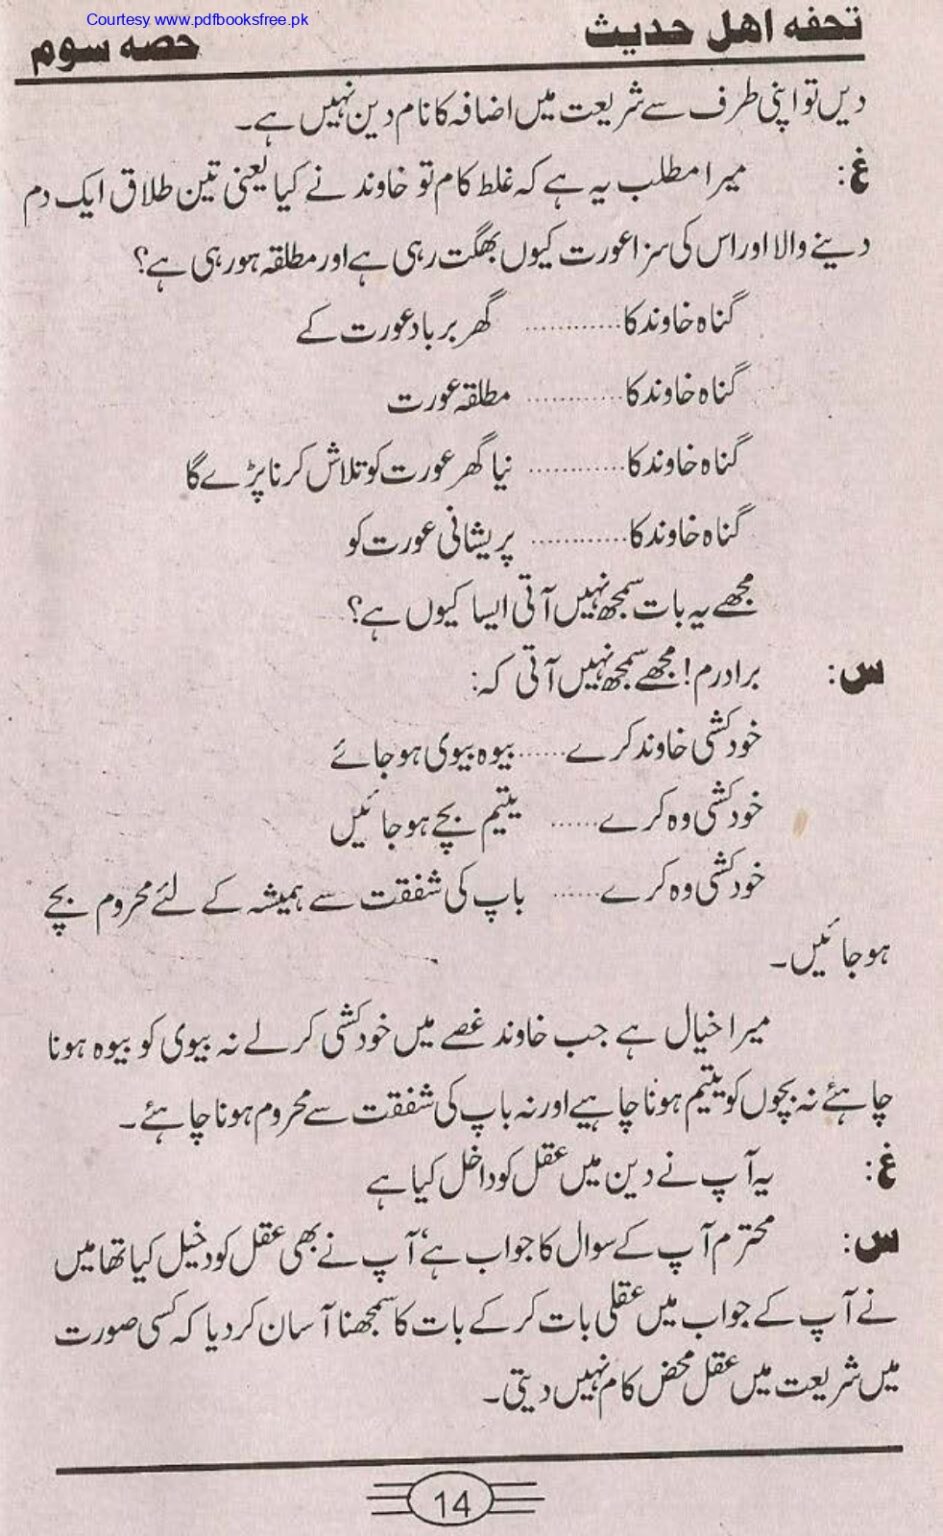 Courtesy www.pdfbooksfree.pk
تحفہ اھل حدیث حصہ سوم
دیں تو اپنی طرف سے شریعت میں اضافہ کا نام دین نہیں ہے۔
غ: میرا مطلب یہ ہے کہ غلط کام تو خاوند نے کیا یعنی تین طلاق ایک دم
دینے والا اور اس کی سزا عورت کیوں بھگت رہی ہے اور مطلقہ ہو رہی ہے؟
گناہ خاوند کا............ گھر برباد عورت کے
گناہ خاوند کا............ مطلقہ عورت
گناہ خاوند کا............ نیا گھر عورت کو تلاش کرنا پڑے گا
گناہ خاوند کا............ پریشانی عورت کو
مجھے یہ بات سمجھ نہیں آتی ایسا کیوں ہے؟
س: برادرم! مجھے سمجھ نہیں آتی کہ:
خودکشی خاوند کرے...... بیوہ بیوی ہو جائے
خودکشی وہ کرے...... یتیم بچے ہو جائیں
خودکشی وہ کرے...... باپ کی شفقت سے ہمیشہ کے لئے محروم بچے
ہو جائیں۔
میرا خیال ہے جب خاوند غصے میں خودکشی کر لے نہ بیوی کو بیوہ ہونا
چاہئے نہ بچوں کو یتیم ہونا چاہیے اور نہ باپ کی شفقت سے محروم ہونا چاہئے۔
غ: یہ آپ نے دین میں عقل کو داخل کیا ہے
س: محترم آپ کے سوال کا جواب ہے، آپ نے بھی عقل کو دخیل کیا تھا میں
نے آپ کے جواب میں عقلی بات کر کے بات کا سمجھنا آسان کر دیا کہ کسی صورت
میں شریعت میں عقل محض کام نہیں دیتی۔
14